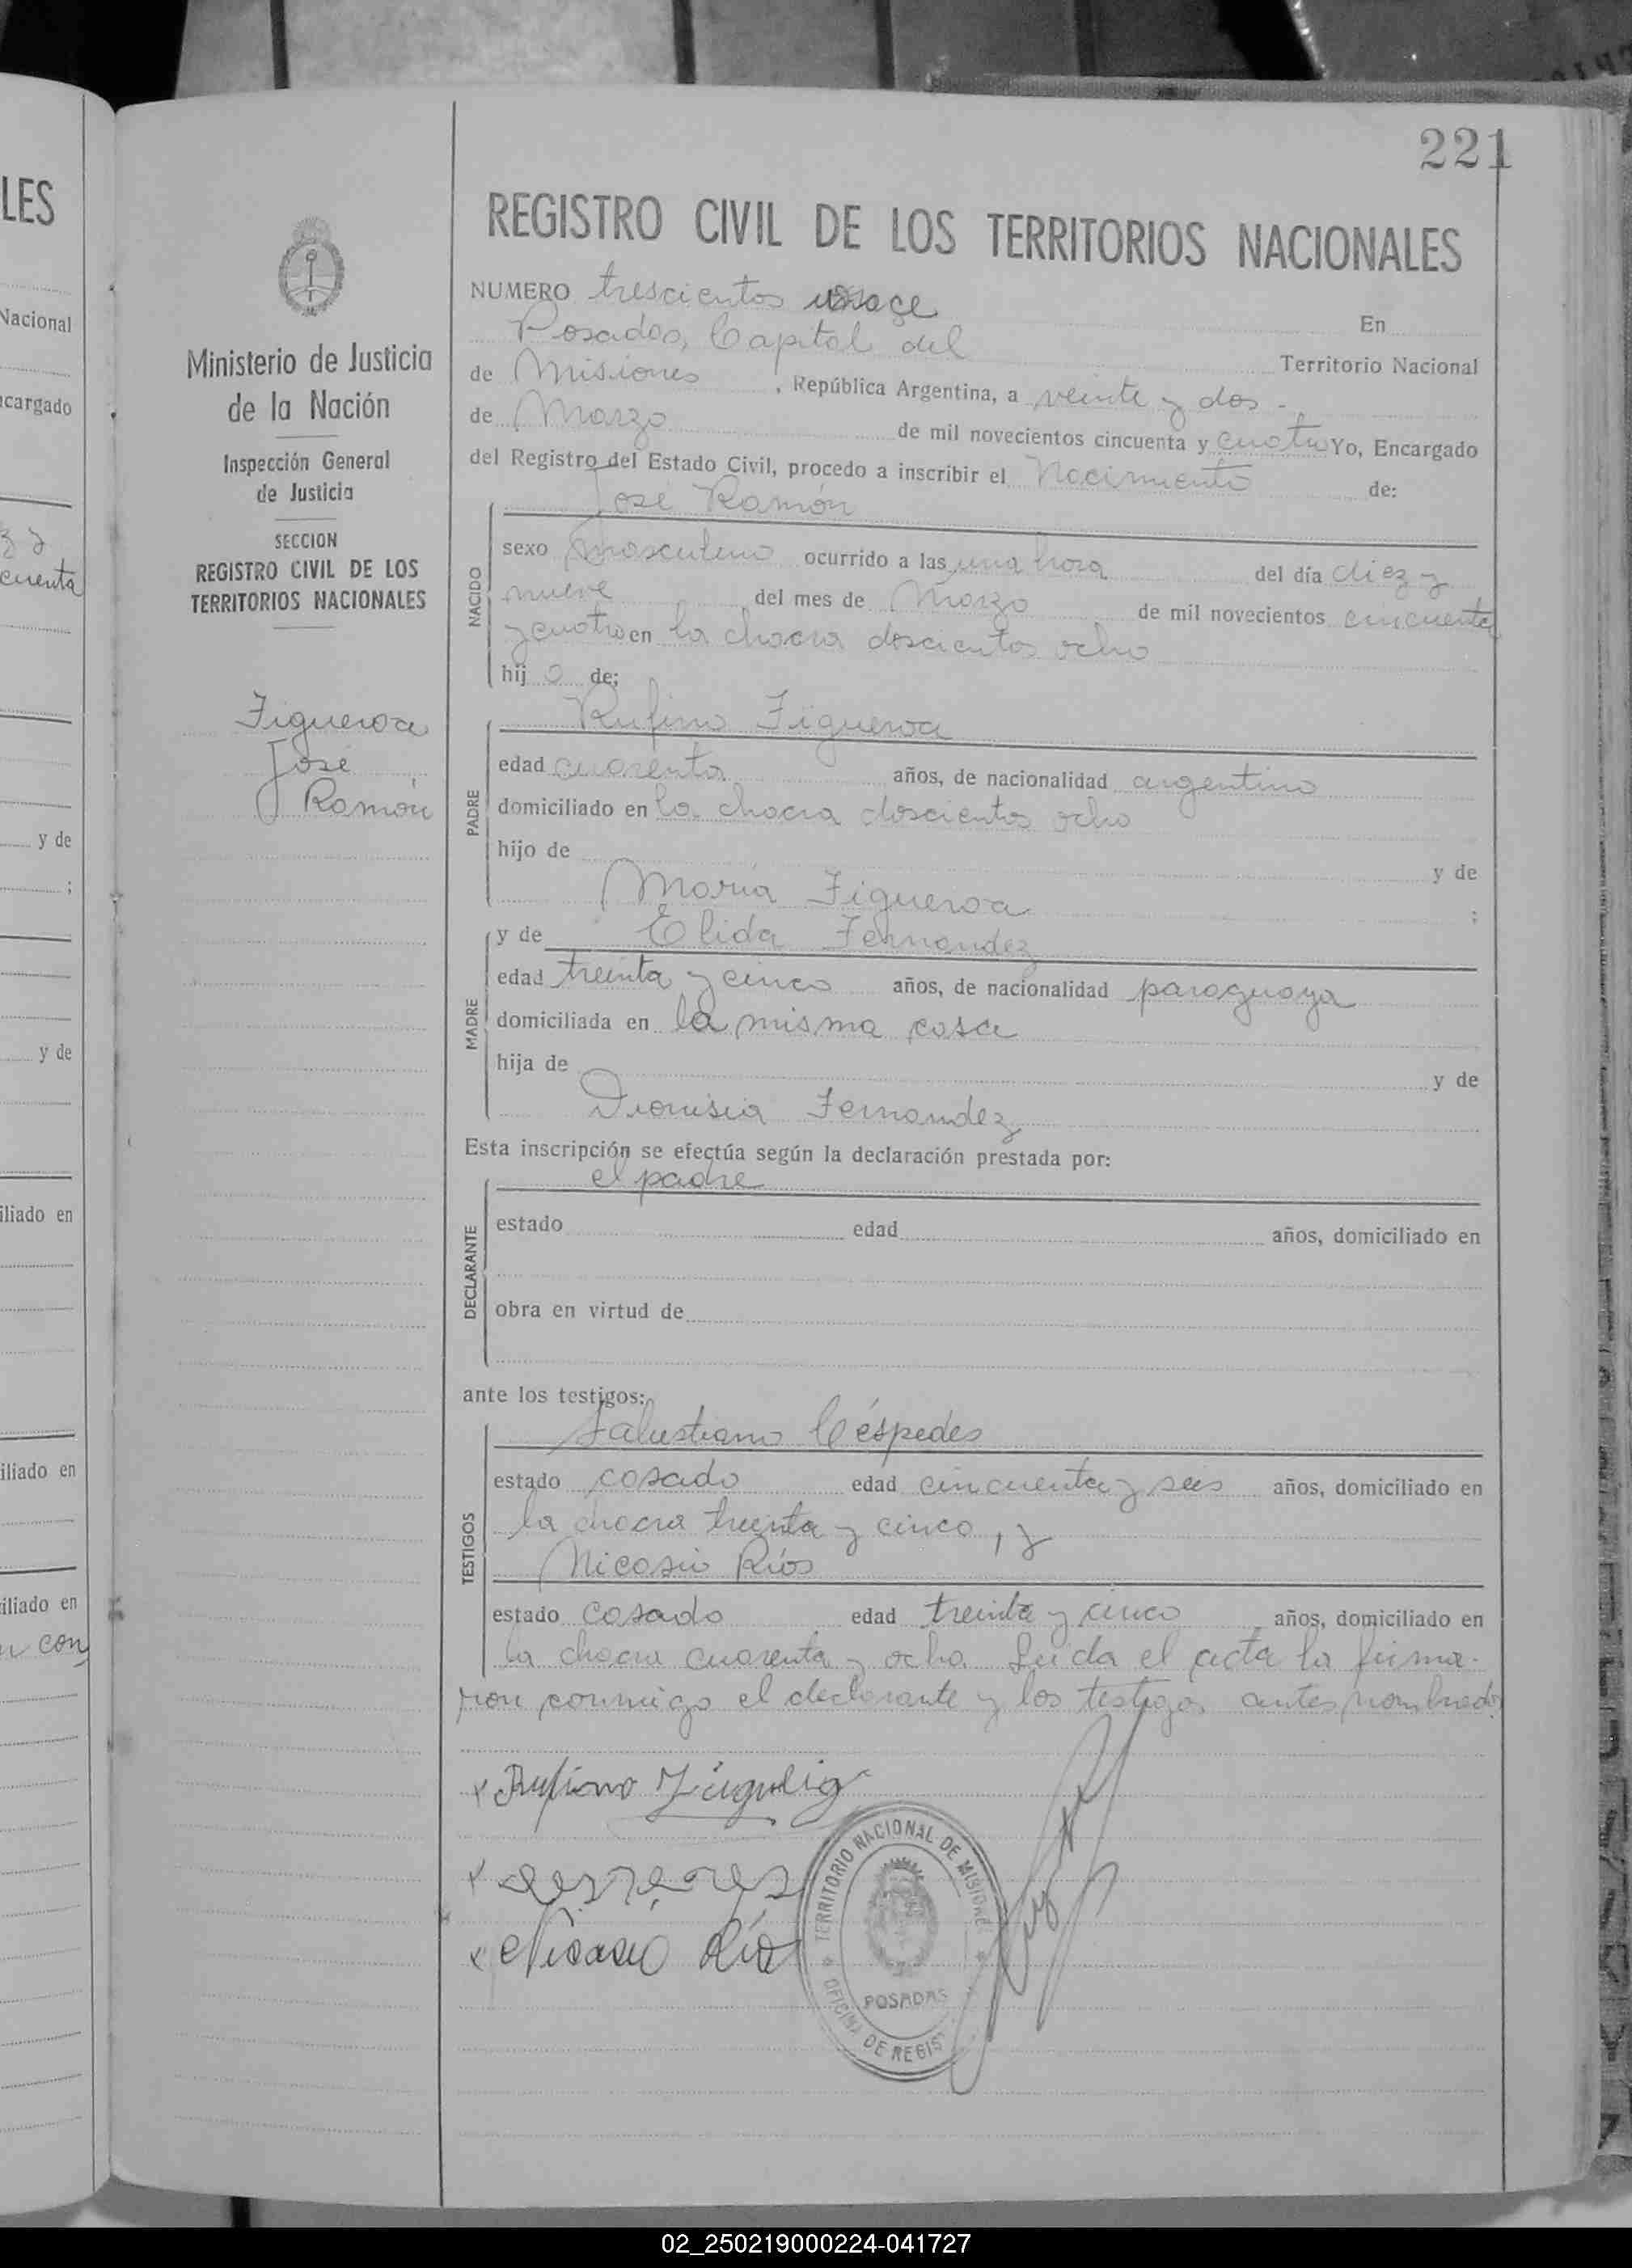 LES
Nacional
ncargado
cuenta
y de
;
y de
iliado en
iliado en
iliado en
con
221
Ministerio de Justicia
de la Nación
Inspección General
de Justicia
SECCION
REGISTRO CIVIL DE LOS
TERRITORIOS NACIONALES
Figueroa
José
Ramón
REGISTRO CIVIL DE LOS TERRITORIOS NACIONALES
NUMERO trescientos En
Posadas, Capital del Territorio Nacional
de Misiones, República Argentina, a veinte y dos
de Marzo de mil novecientos cincuenta y cuatro Yo, Encargado
del Registro del Estado Civil, procedo a inscribir el Nacimiento de:
José Ramón
NACIDO
sexo masculino ocurrido a las una hora del día diez y
nueve del mes de Marzo de mil novecientos cincuenta
y cuatro en la chacra doscientos ocho
hijo de;
Rufino Figueroa
PADRE
edad cuarenta años, de nacionalidad argentino
domiciliado en la chacra doscientos ocho
hijo de y de
María Figueroa ;
y de Elida Fernandez
MADRE
edad treinta y cinco años, de nacionalidad paraguaya
domiciliada en la misma casa
hija de y de
Dionisia Fernandez
Esta inscripción se efectúa según la declaración prestada por:
el padre
DECLARANTE
estado edad años, domiciliado en
obra en virtud de
ante los testigos:
Salustiano Céspedes
TESTIGOS
estado casado edad cincuenta y seis años, domiciliado en
la chacra treinta y cinco, y
Nicasio Ríos
estado casado edad treinta y cinco años, domiciliado en
la chacra cuarenta y ocho. Leida el acta la firma-
ron conmigo el declarante y los testigos antes nombrados
x Rufino
x
x Nicasio Ríos
TERRITORIO NACIONAL DE MISIONE
POSADAS
OFICINA DE REGIS
02_250219000224-041727